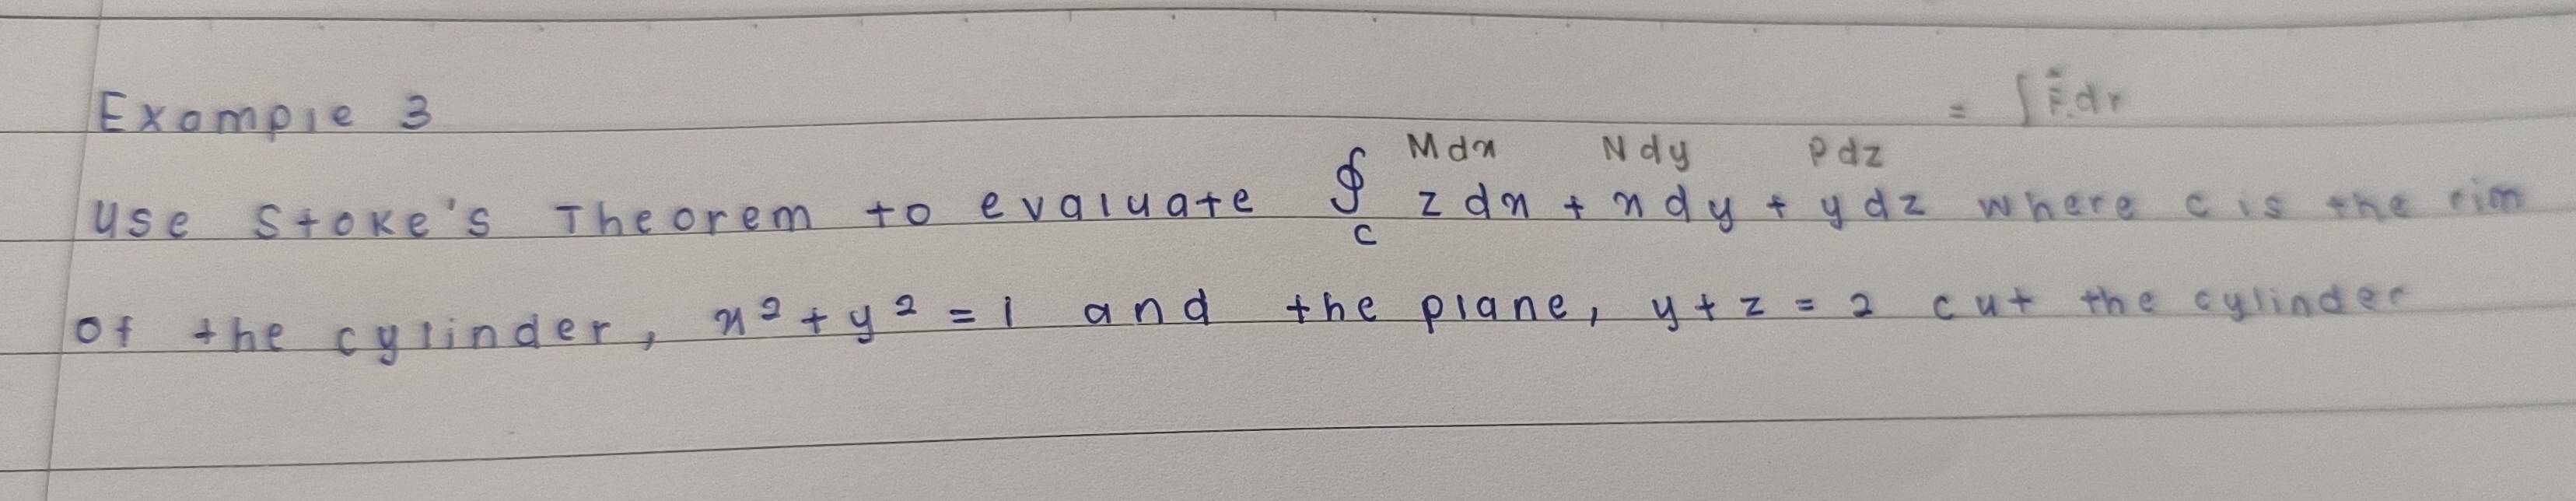 Example 3
= ∫ F̃.dr
Mdx Ndy Pdz
Use Stoke's Theorem to evaluate ∮c zdx + xdy + ydz where c is the rim
of the cylinder, x² + y² = 1 and the plane, y + z = 2 cut the cylinder